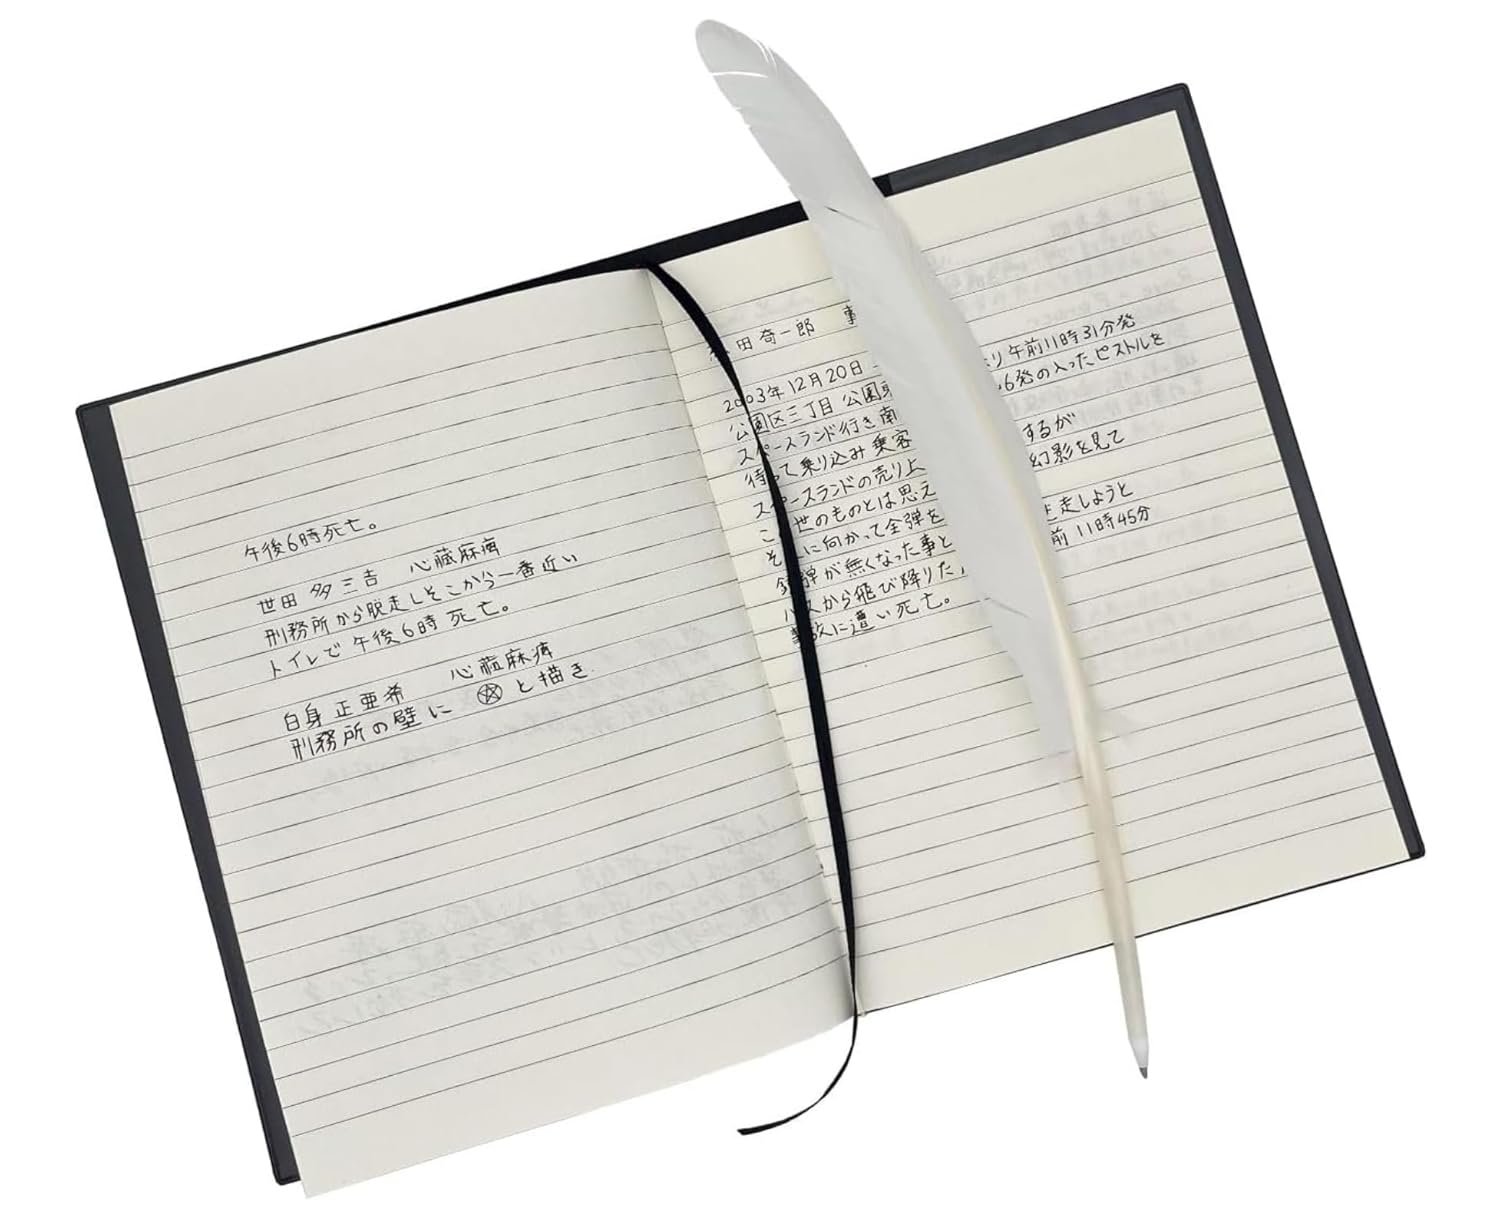 午後6時死亡。
世田 多三吉 心臓麻痺
刑務所から脱走しそこから一番近い
トイレで午後6時死亡。
白身 正亜希 心臓麻痺
刑務所の壁に と描き
田奇一郎 事
2003年12月20日 より午前11時31分発
公園区三丁目 公園東 6発の入ったピストルを
スペースランド行き南
待って乗り込み乗客 するが
スペースランドの売り上 幻影を見て
この世のものとは思え
それに向かって全弾を 走しようと
銃弾が無くなった事と 前11時45分
バスから飛び降りた
事故に遭い死亡。